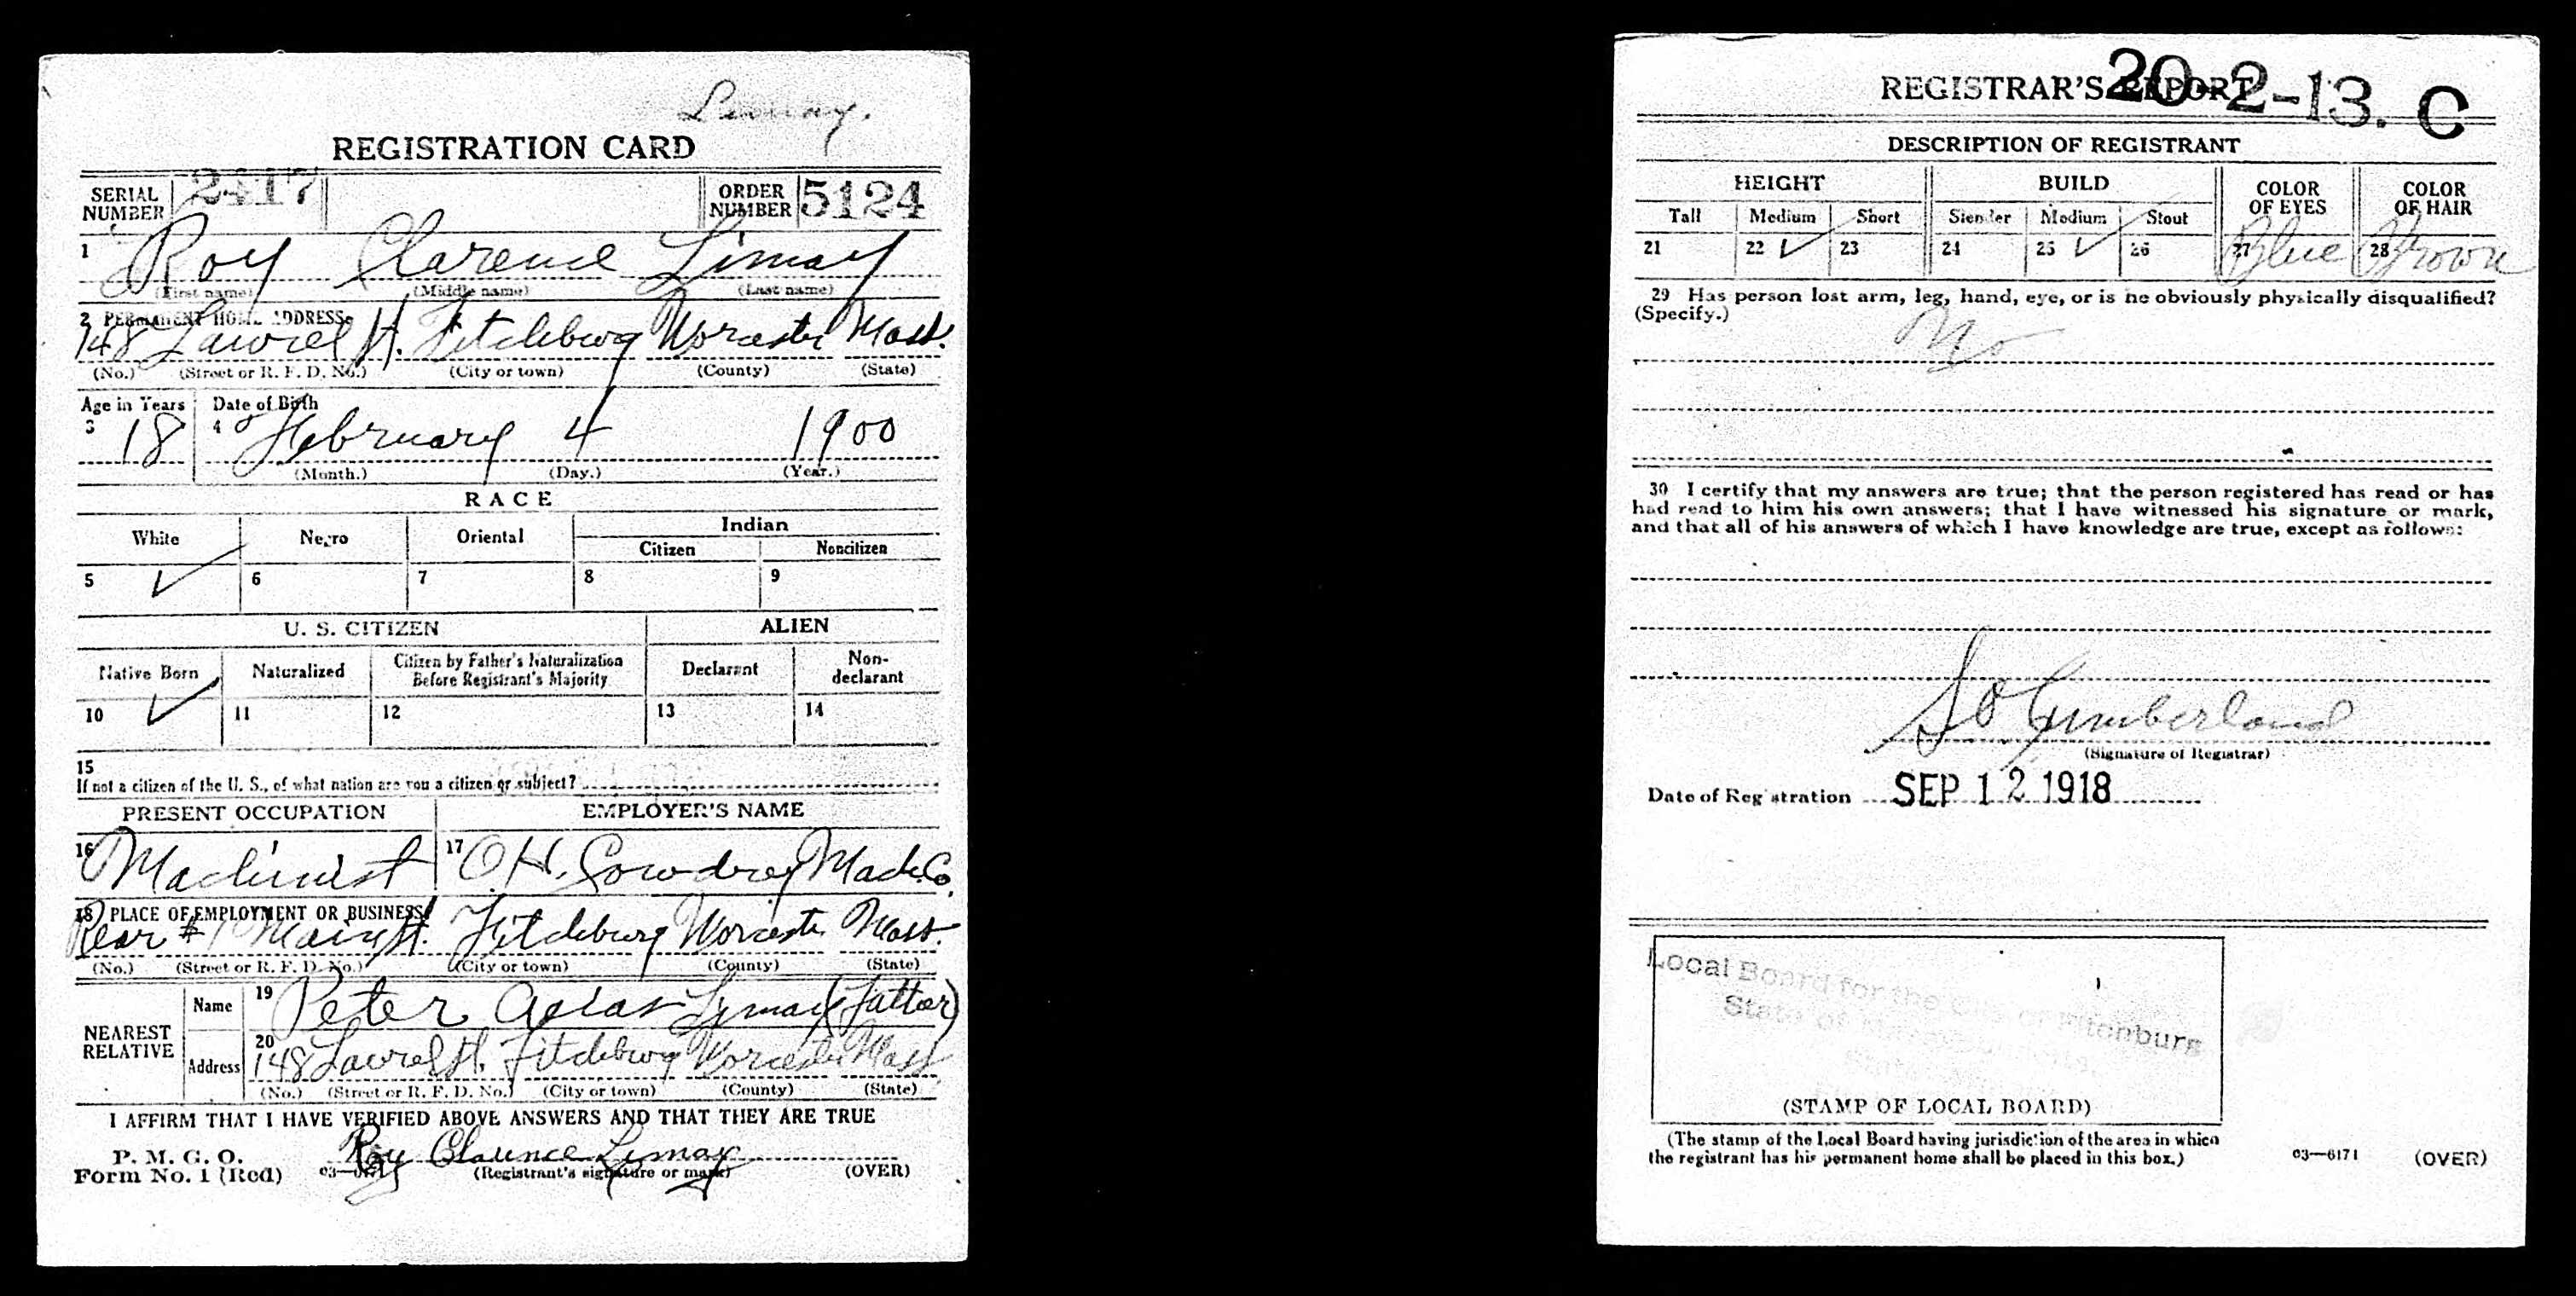 Lemay.
REGISTRATION CARD
SERIAL NUMBER 2417 ORDER NUMBER 5124
1 Roy Clarence Limay
(First name) (Middle name) (Last name)
2 PERMANENT HOME ADDRESS:
148 Laurel St. Fitchburg Worcester Mass.
(No.) (Street or R. F. D. No.) (City or town) (County) (State)
Age in Years Date of Birth
3 18 4 February 4 1900
(Month.) (Day.) (Year.)
RACE
White Negro Oriental Indian
Citizen Noncitizen
5 ✓ 6 7 8 9
U. S. CITIZEN ALIEN
Native Born Naturalized Citizen by Father's Naturalization Before Registrant's Majority Declarant Non-declarant
10 ✓ 11 12 13 14
15
If not a citizen of the U. S., of what nation are you a citizen or subject?
PRESENT OCCUPATION EMPLOYER'S NAME
16 Machinist 17 C.H. Cowdrey Mach. Co.
18 PLACE OF EMPLOYMENT OR BUSINESS:
Rear # 1 Main St. Fitchburg Worcester Mass.
(No.) (Street or R. F. D. No.) (City or town) (County) (State)
NEAREST RELATIVE
Name 19 Peter Limay (Father)
Address 20 148 Laurel St. Fitchburg Worcester Mass
(No.) (Street or R. F. D. No.) (City or town) (County) (State)
I AFFIRM THAT I HAVE VERIFIED ABOVE ANSWERS AND THAT THEY ARE TRUE
P. M. G. O.
Form No. 1 (Red) 03—6171 Roy Clarence Limay
(Registrant's signature or mark) (OVER)
REGISTRAR'S REPORT
20-2-13. C
DESCRIPTION OF REGISTRANT
HEIGHT BUILD COLOR OF EYES COLOR OF HAIR
Tall Medium Short Slender Medium Stout
21 22 ✓ 23 24 25 ✓ 26 27 Blue 28 Brown
29 Has person lost arm, leg, hand, eye, or is he obviously physically disqualified?
(Specify.)
No
30 I certify that my answers are true; that the person registered has read or has
had read to him his own answers; that I have witnessed his signature or mark,
and that all of his answers of which I have knowledge are true, except as follows:
Cumberland
(Signature of Registrar)
Date of Registration SEP 12 1918
Local Board for the City of Fitchburg
State of
(STAMP OF LOCAL BOARD)
(The stamp of the Local Board having jurisdiction of the area in which
the registrant has his permanent home shall be placed in this box.)
03—6171 (OVER)